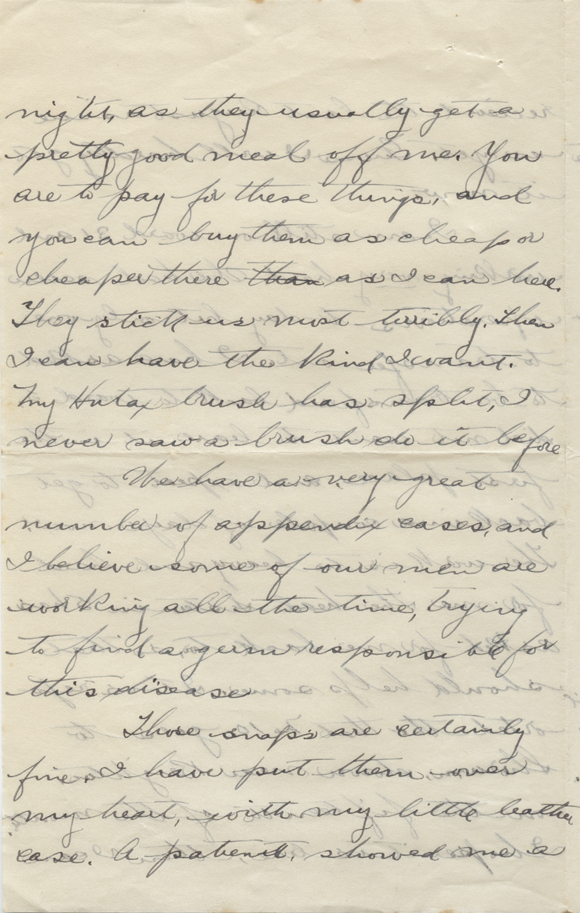 night, as they usually get a
pretty good meal off me. You
are to pay for these things, and
you can buy them as cheap or
cheaper there than as I can here.
They stick us most terribly. Then
I can have the kind I want.
My Hutax brush has split, I
never saw a brush do it before
We have a very great
number of appendix cases, and
I believe some of our men are
working all the time, trying
to find a germ responsible for
this disease
Those snaps are certainly
fine, I have put them over
my heart, with my little leather
case. A patient, showed me a